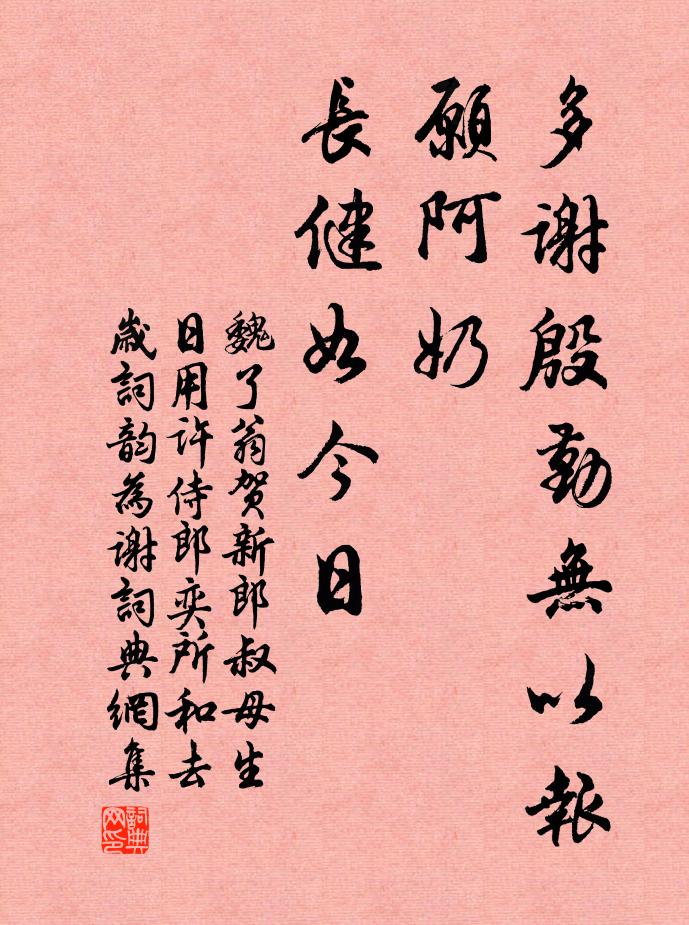 多謝殷勤無以報
願阿奶
長健如今日
魏了翁賀新郎叔母生
日用许侍郎奕所和去
歲詞韵為谢詞典網集
詞典网印